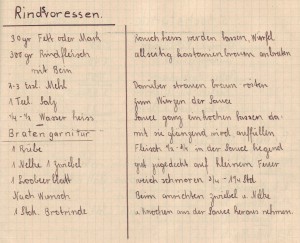 Rindsvoressen.
30 gr Fett oder Mark rauch heiss werden lassen, Würfel
300 gr Rindfleisch allseitig kastanienbraun anbraten
mit Bein
2-3 Essl. Mehl Darüber streuen braun rösten
1 Teel. Salz zum Würzen der Sauce
¼-½ Wasser heiss Sauce ganz einkochen lassen da-
Bratengarnitur mit sie glänzend wird auffüllen
1 Rübe Fleisch in der Sauce liegend
1 Nelke 1 Zwiebel gut zugedeckt auf kleinem Feuer
1 Loorberblatt weich schmoren Std.
Nach Wunsch Beim anrichten Zwiebel u. Nelke
1 Stck. Brotrinde u Knochen aus der Sauce heraus nehmen.